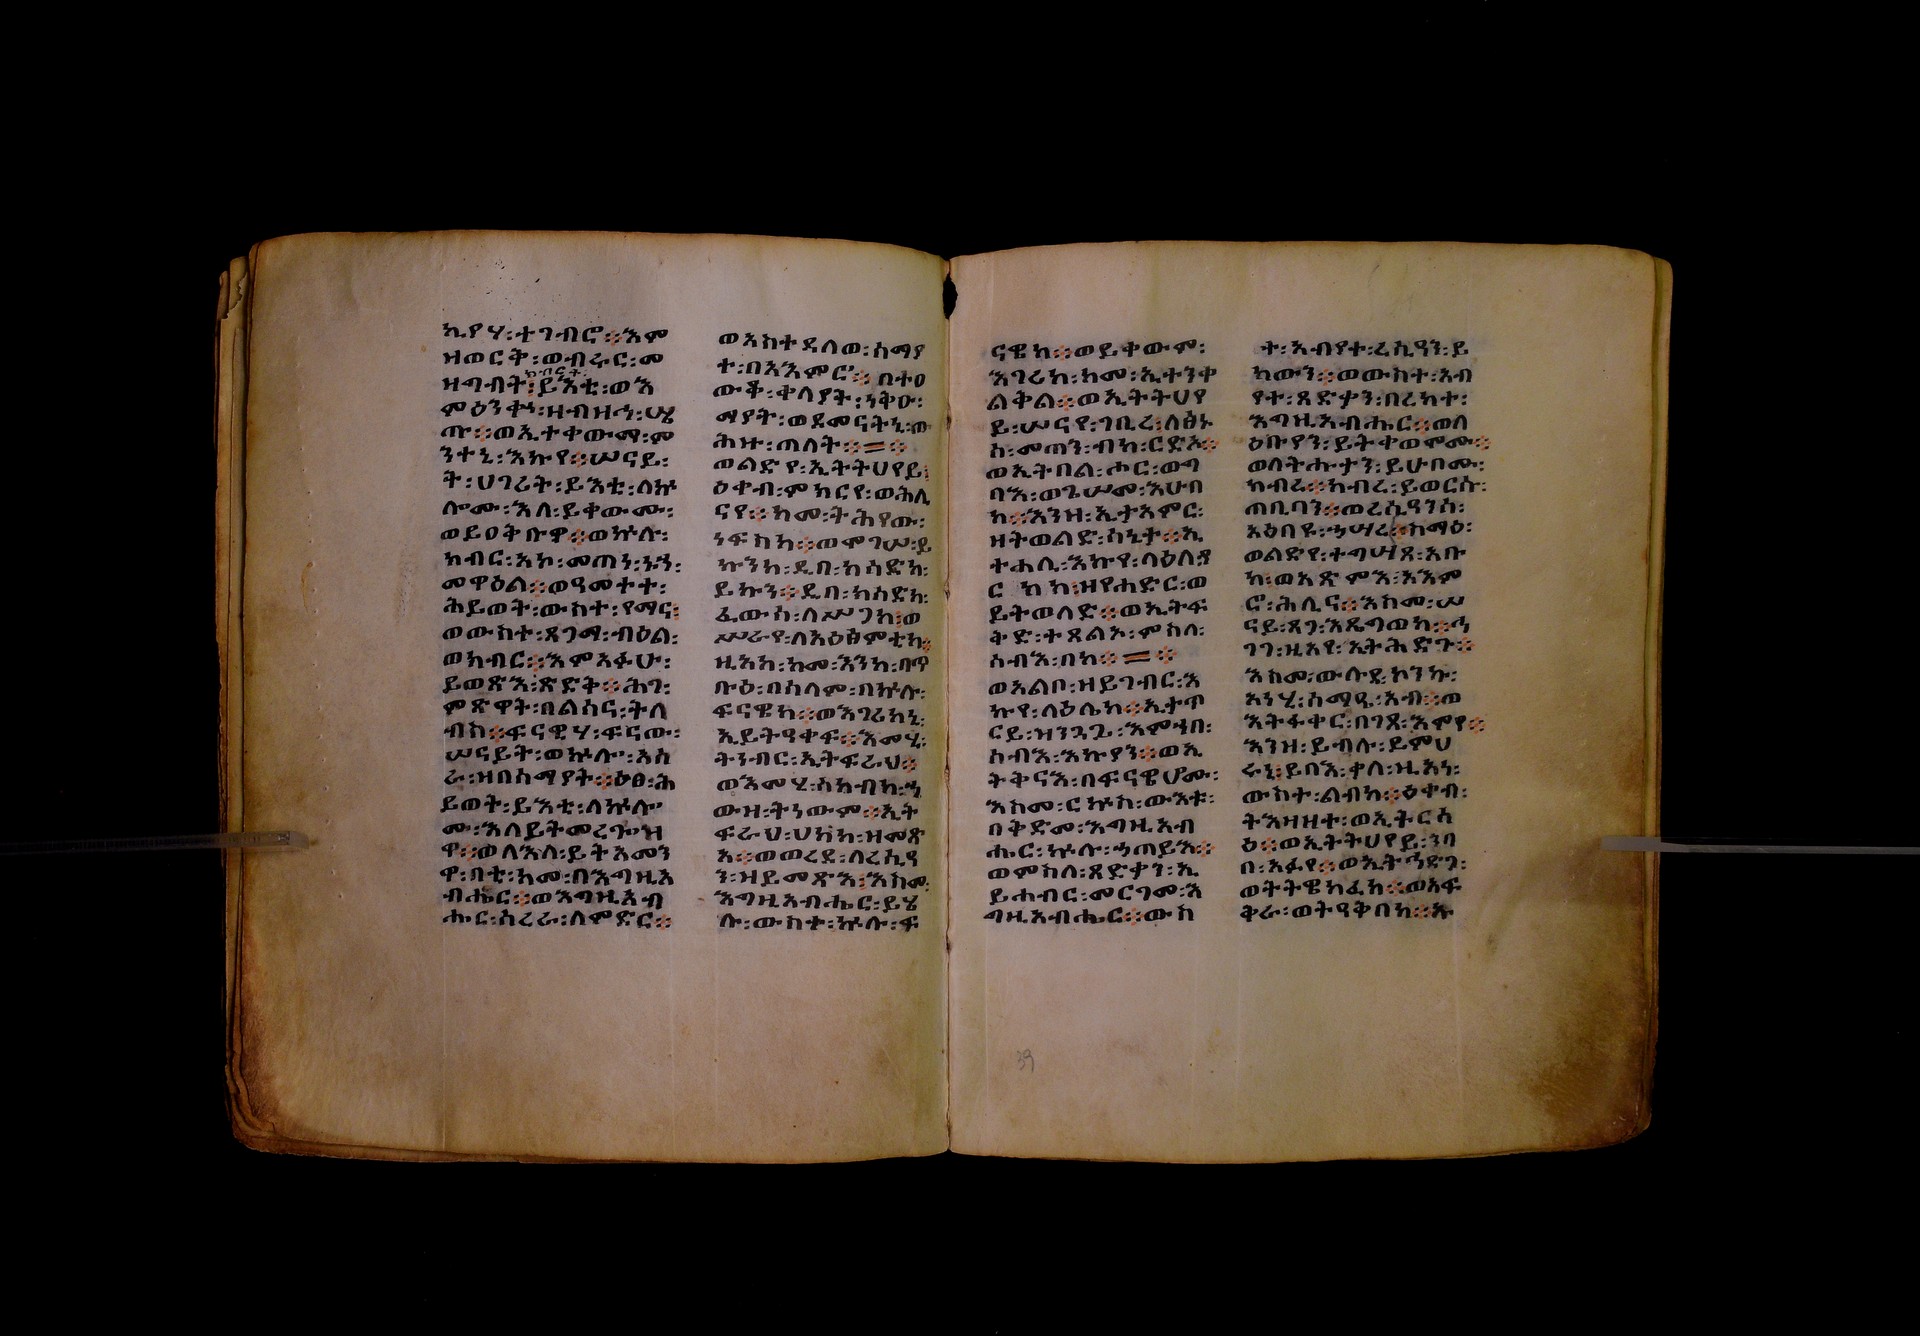 ኪየሃ፡ተገብሮ፨እም
ዝወርቅ፡ወብሩር፡መ
ክብርት፡
ዝግብት፡ይእቲ፡ወእ
ምዕንቍ፡ዘብዙኅ፡ሤ
ጡ፨ወኢተቀውማ፡ም
ንተኒ፡እኩየ፨ሠናይ፡
ት፡ሀገሪት፡ይእቲ፡ለኵ
ሎሙ፡እለ፡ይቀውሙ፡
ወይዐቅቡዋ፨ወኵሉ፡
ክብር፡አኮ፡መጠነ፡ነኀ፡
መዋዕል፨ወዓመተተ፡
ሕይወት፡ውስተ፡የማና፡
ወውስተ፡ጸጋማ፡ብዕል፡
ወክብር፨እምአፉሁ፡
ይወጽእ፡ጽድቅ፨ሕገ፡
ምጽዋት፡በልሳና፡ትለ
ብስ፨ፍናዊሃ፡ፍናው፡
ሠናይት፡ወኵሉ፡አሰ
ራ፡ዘበሰማያት፨ዕፀ፡ሕ
ይወት፡ይእቲ፡ለኵሎ
ሙ፡እለይትመረጐዝ
ዋ፨ወለእለ፡ይትአመን
ዋ፡በቲ፡ከመ፡በእግዚአ
ብሔር፨ወእግዚአብ
ሔር፡ሰረራ፡ለምድር፨
ወአስተዳለወ፡ሰማያ
ተ፡በአእምሮ፨በተዐ
ውቆ፡ቀላያት፡ነቅዑ፡
ማያት፡ወደመናትኒ፡ው
ሕዙ፡ጠለት፨፨
ወልድየ፡ኢትትሀየይ፡
ዕቀብ፡ምክርየ፡ወሕሊ
ናየ፨ከመ፡ትሕየው፡
ነፍስከ፨ወሞገሠ፡ይ
ኩንከ፡ዲበ፡ክሳድከ፡
ይኩን፨ዲበ፡ክሳድከ፡
ፈውሰ፡ለሥጋከ፡ወ
ሥራየ፡ለአዕፅምቲከ፨
ዚአከ፡ከመ፡እንከ፡በጥ
ቡዕ፡በሰላም፡በኵሉ፡
ፍናዊከ፨ወእገሪከኒ፡
ኢይትዓቀፍ፨እመሂ፡
ትነብር፡ኢትፍራህ፨
ወእመሂ፡ሰከብከ፡ኂ
ውዝ፡ትነውም፨ኢት
ፍራህ፡ህከክ፡ዝመጽ
አ፨ወወረደ፡ለረሲዓ
ን፡ዝይመጽእ፡እስመ፡
እግዚአብሔር፡ይሄ
ሉ፡ውስተ፡ኵሉ፡ፍ
ናዊከ፨ወይቀውም፡
እገሪከ፡ከመ፡ኢተንቀ
ልቅል፨ወኢትትሀየ
ይ፡ሠናየ፡ገቢረ፡ለፅኑ
ስ፡መጠን፡ብከ፡ርድኦ፨
ወኢትበል፡ሖር፡ወግ
ባእ፡ወጌሠመ፡እሁበ
ከ፨እንዘ፡ኢታአምር፡
ዘትወልድ፡ሰኒት፨ኢ
ተሐሊ፡እኩየ፡ላዕለ፡ዓ
ርክከ፡ዘየሐድር፡ወ
ይትወለድ፨ወኢትፍ
ቅድ፡ተጸልኦ፡ምስለ፡
ሰብእ፡በከ፨፨
ወአልቦ፡ዘይገብር፡እ
ኩየ፡ላዕሌከ፨ኢታጥ
ርይ፡ዝንጓጔ፡እምኀበ፡
ሰብእ፡እኩያን፨ወኢ
ትቅናእ፡በፍናዊሆሙ፡
እስመ፡ርኵስ፡ውእቱ፡
በቅድመ፡እግዚአብ
ሔር፡ኵሉ፡ኃጠይእ፨
ወምስለ፡ጸድቃን፡ኢ
ይሐብር፡መርገመ፡እ
ግዚአብሔር፨ውስ
ተ፡አብያተ፡ረሲዓን፡ይ
ከውን፨ወውስተ፡አብ
ያተ፡ጸድቃን፡በረከተ፡
እግዚአብሔር፨ወለ
ዕቡያን፡ይትቀወሞሙ፨
ወለትሑታን፡ይሁቦሙ፡
ክብረ፨ክብረ፡ይወርሱ፡
ጠቢባን፨ወረሲዓንሰ፡
አዕበዩ፡ኃሣረ፨ስማዕ፡
ወልድየ፡ተግሣጸ፡አቡ
ከ፡ወአጽምእ፡አእም
ሮ፡ሕሊና፨እስመ፡ሠ
ናይ፡ጸጋ፡እጼግወከ፨ኅ
ገገ፡ዚአየ፡ኢትሕድጉ፨
እስመ፡ውሉደ፡ኮንኩ፡
አንሂ፡ሰማዒ፡አብ፨ወ
እትፋቀር፡በገጸ፡እምየ፨
እንዘ፡ይብሉ፡ይምህ
ሩኒ፡ይባእ፡ቃለ፡ዚአነ፡
ውስተ፡ልብከ፨ዕቀብ፡
ትእዛዘተ፡ወኢትርሳ
ዕ፨ወኢትትሀየይ፡ነገ
በ፡አፉየ፨ወኢትኅድጋ፡
ወትትዌከፈከ፨ወአፍ
ቅራ፡ወትዓቅበከ፨ኡ
39